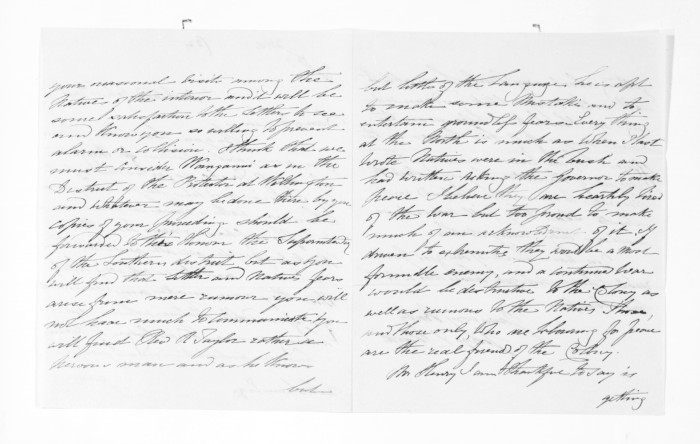 your occasional visits among the
Natives of the interior and it will be
some satisfaction to the Settlers to see
and know you so willing to prevent
alarm or collision. I think that we
must consider Wanganui as in the
District of the Protector at Wellington
and whatever may be done there by you
copies of your proceeding should be
forwarded to His Honor the Superintendent
of the Southern district but as you
will find that Settler and Natives fears
arise from mere rumour you will
not have much to communicate you
will find Revd R Taylor rather a
nervous man and as he know
but little of the Language he is apt
to make some mistake and to
entertain groundless fears Every thing
at the North is much as when I last
wrote Natives were in the bush and
had written asking the Governor to make
peace I believe they are heartily tired
of the war but too proud to make
much of an acknowledgment of it, If
driven to extremities they would be a most
formidable enemy, and a continued war
would be destructive to the Colony as
well as ruinous to the Natives Those,
and those only, who are labouring for peace
are the real friend of the Colony.
Mr Henry I am thankful to say is
getting